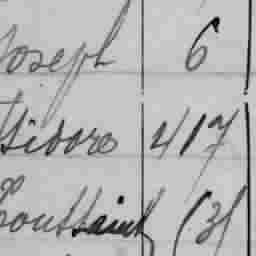 Joseph 6
Isidore 417
Toussaint (3)